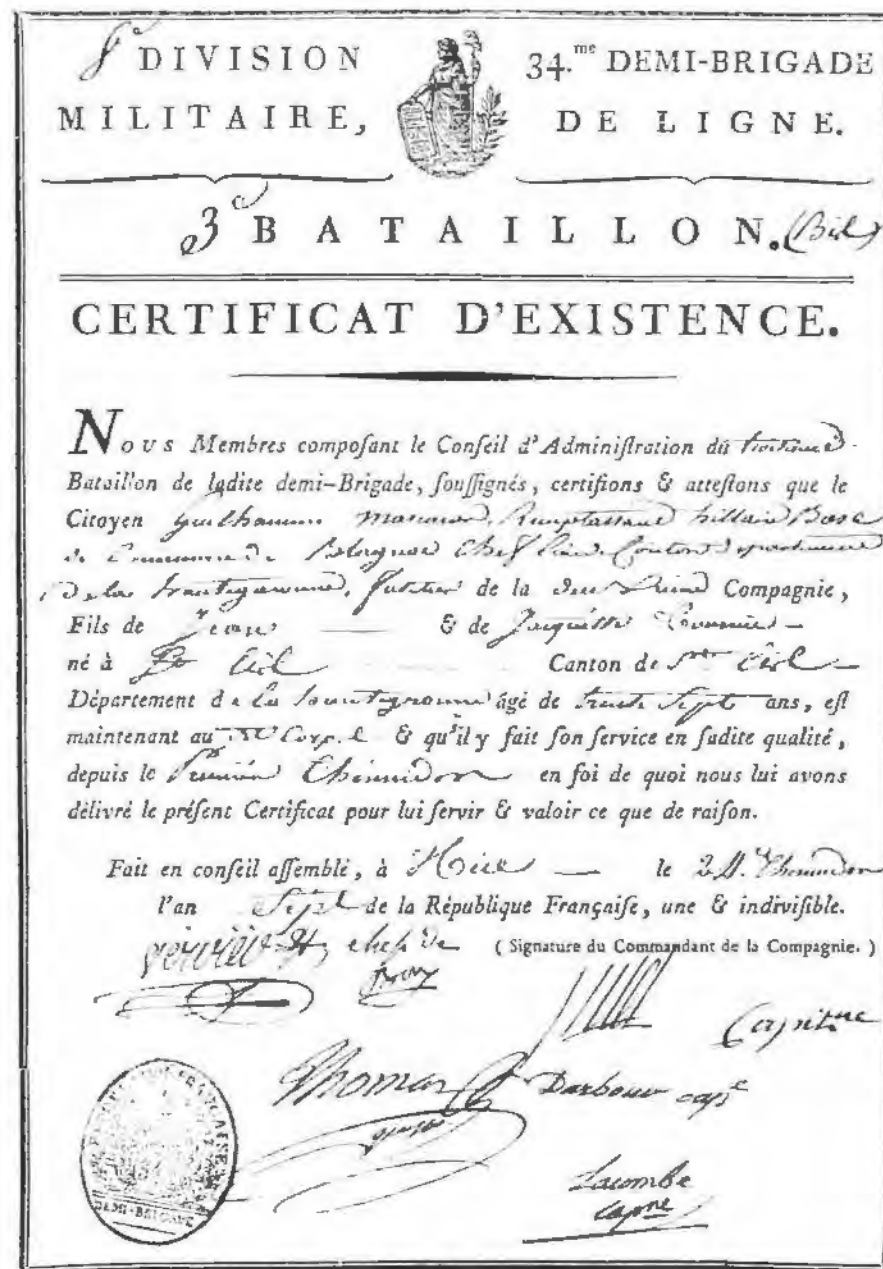 8e DIVISION MILITAIRE,
34.me DEMI-BRIGADE DE LIGNE.
3e BATAILLON. (Bis)
CERTIFICAT D'EXISTENCE.
Nous Membres compoſant le Conſeil d'Adminiſtration du troisieme
Bataillon de ladite demi-Brigade, ſouſſignés, certifions & atteſtons que le
Citoyen Guilhaume Remplassant hillaire Bosc
de Commune de Blagnac Chef lieu de Canton departement
de la hautegaronne, fusilier de la deuxieme Compagnie,
Fils de Jean & de Jacquette
né à St Canton de
Département de la hautegaronne âgé de trente Sept ans, eſt
maintenant au dit Corps & qu'il y fait ſon ſervice en ſadite qualité,
depuis le Premier Thermidor en foi de quoi nous lui avons
délivré le préſent Certificat pour lui ſervir & valoir ce que de raiſon.
Fait en conſeil aſſemblé, à Nice le 24 Thermidor
l'an Sept de la République Françaiſe, une & indiviſible.
chef de (Signature du Commandant de la Compagnie.)
Capitne
Thomas Darbour cape
Lacombe
capne
DEMI-BRIGADE